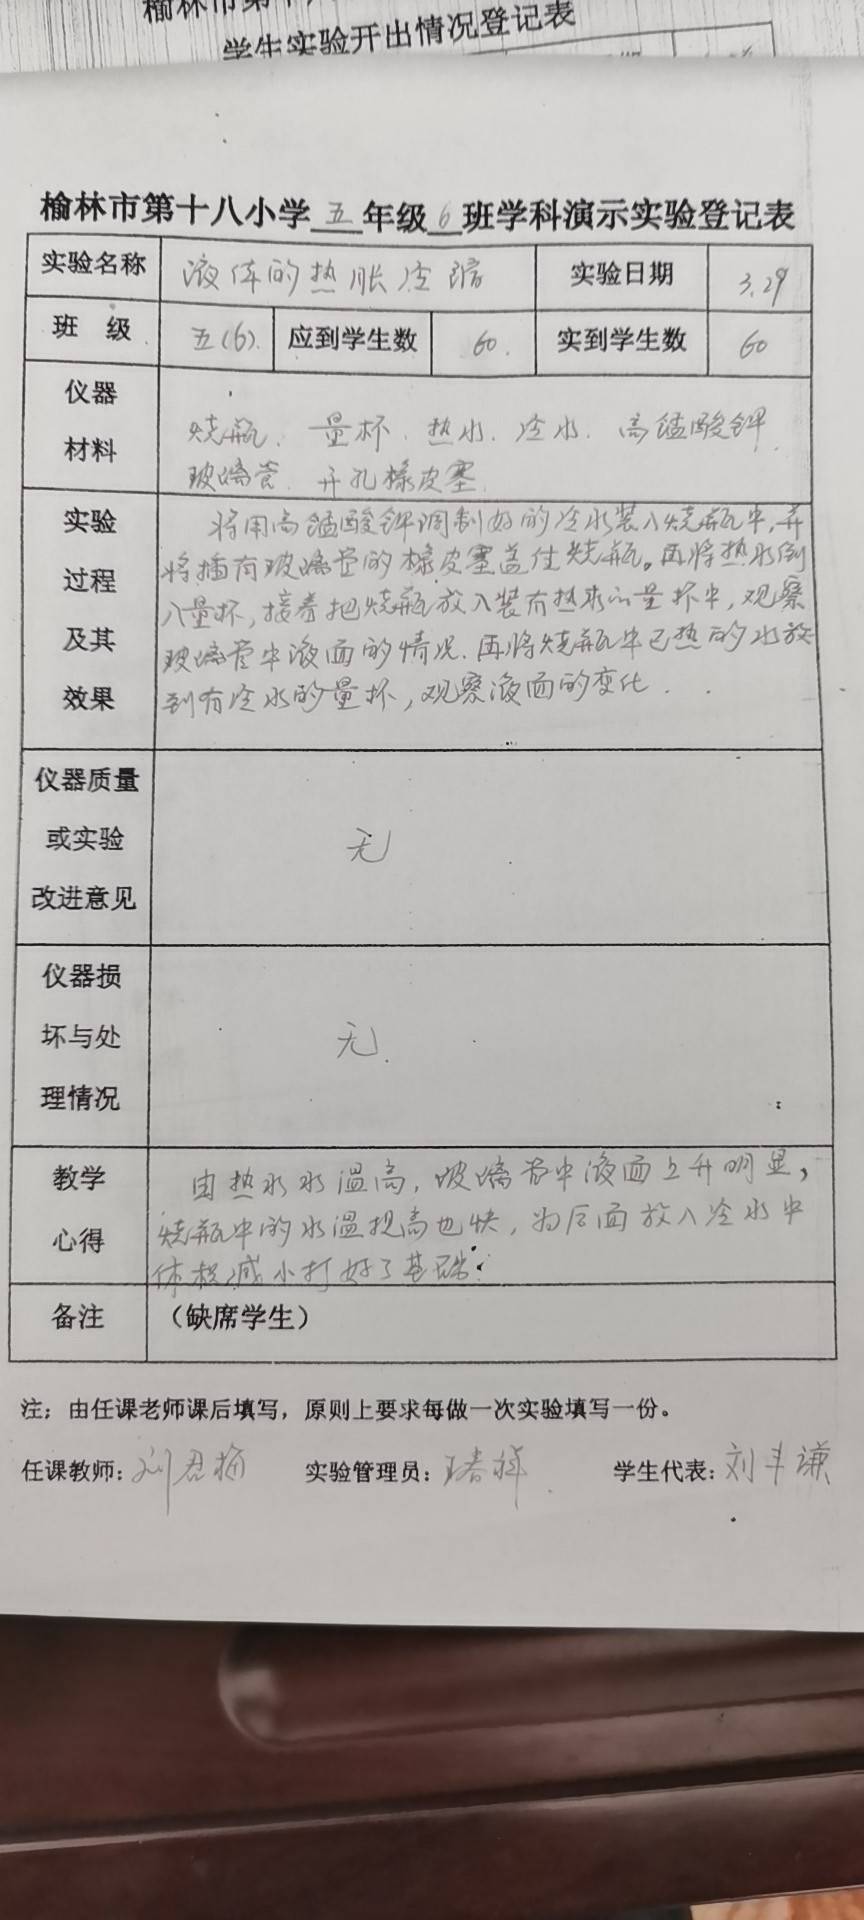 学生实验开出情况登记表
榆林市第十八小学五年级6班学科演示实验登记表
实验名称 液体的热胀冷缩 实验日期 3.29
班 级 五(6). 应到学生数 60. 实到学生数 60
仪器
材料
烧瓶、量杯、热水、冷水、高锰酸钾
玻璃管、开孔橡皮塞.
实验
过程
及其
效果
将用高锰酸钾调制好的冷水装入烧瓶中,并
将插有玻璃管的橡皮塞盖住烧瓶。再将热水倒
入量杯,接着把烧瓶放入装有热水的量杯中,观察
玻璃管中液面的情况.再将烧瓶中已热的水放
到有冷水的量杯,观察液面的变化.
仪器质量
或实验
改进意见
无
仪器损
坏与处
理情况
无.
教学
心得
由热水水温高,玻璃管中液面上升明显,
烧瓶中的水温提高也快,为后面放入冷水中
体积减小打好了基础.
备注 （缺席学生）
注；由任课老师课后填写，原则上要求每做一次实验填写一份。
任课教师: 实验管理员: 学生代表:刘丰谦